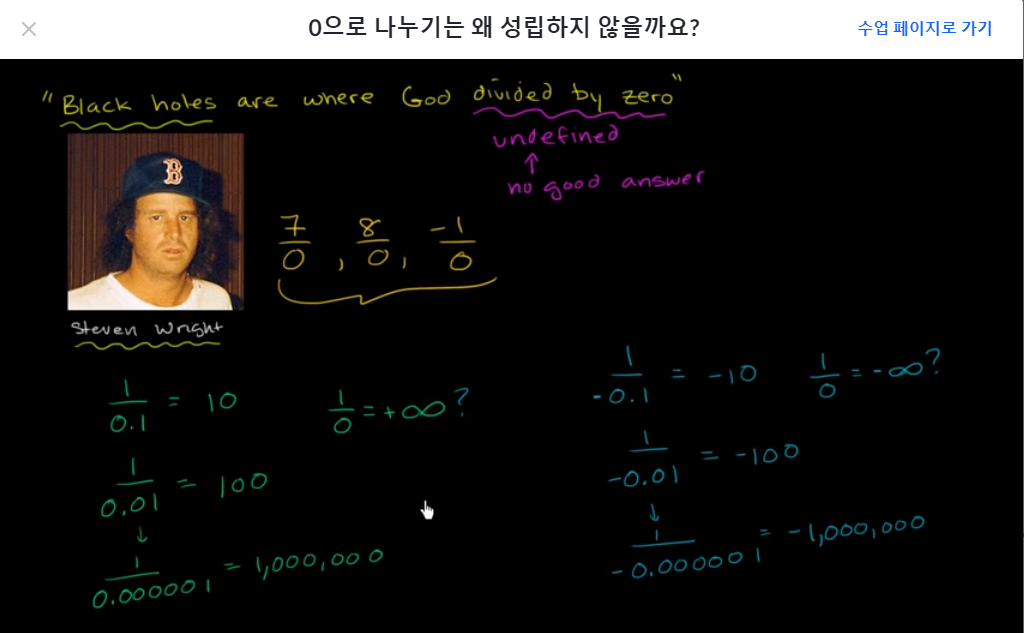 0으로 나누기는 왜 성립하지 않을까요?
수업 페이지로 가기
"Black holes are where God divided by zero"
undefined
↑
no good answer
B
7/0 , 8/0 , -1/0
Steven Wright
1/0.1 = 10
1/0 = +∞?
1/0.01 = 100
↓
1/0.000001 = 1,000,000
1/-0.1 = -10
1/0 = -∞?
1/-0.01 = -100
↓
1/-0.000001 = -1,000,000